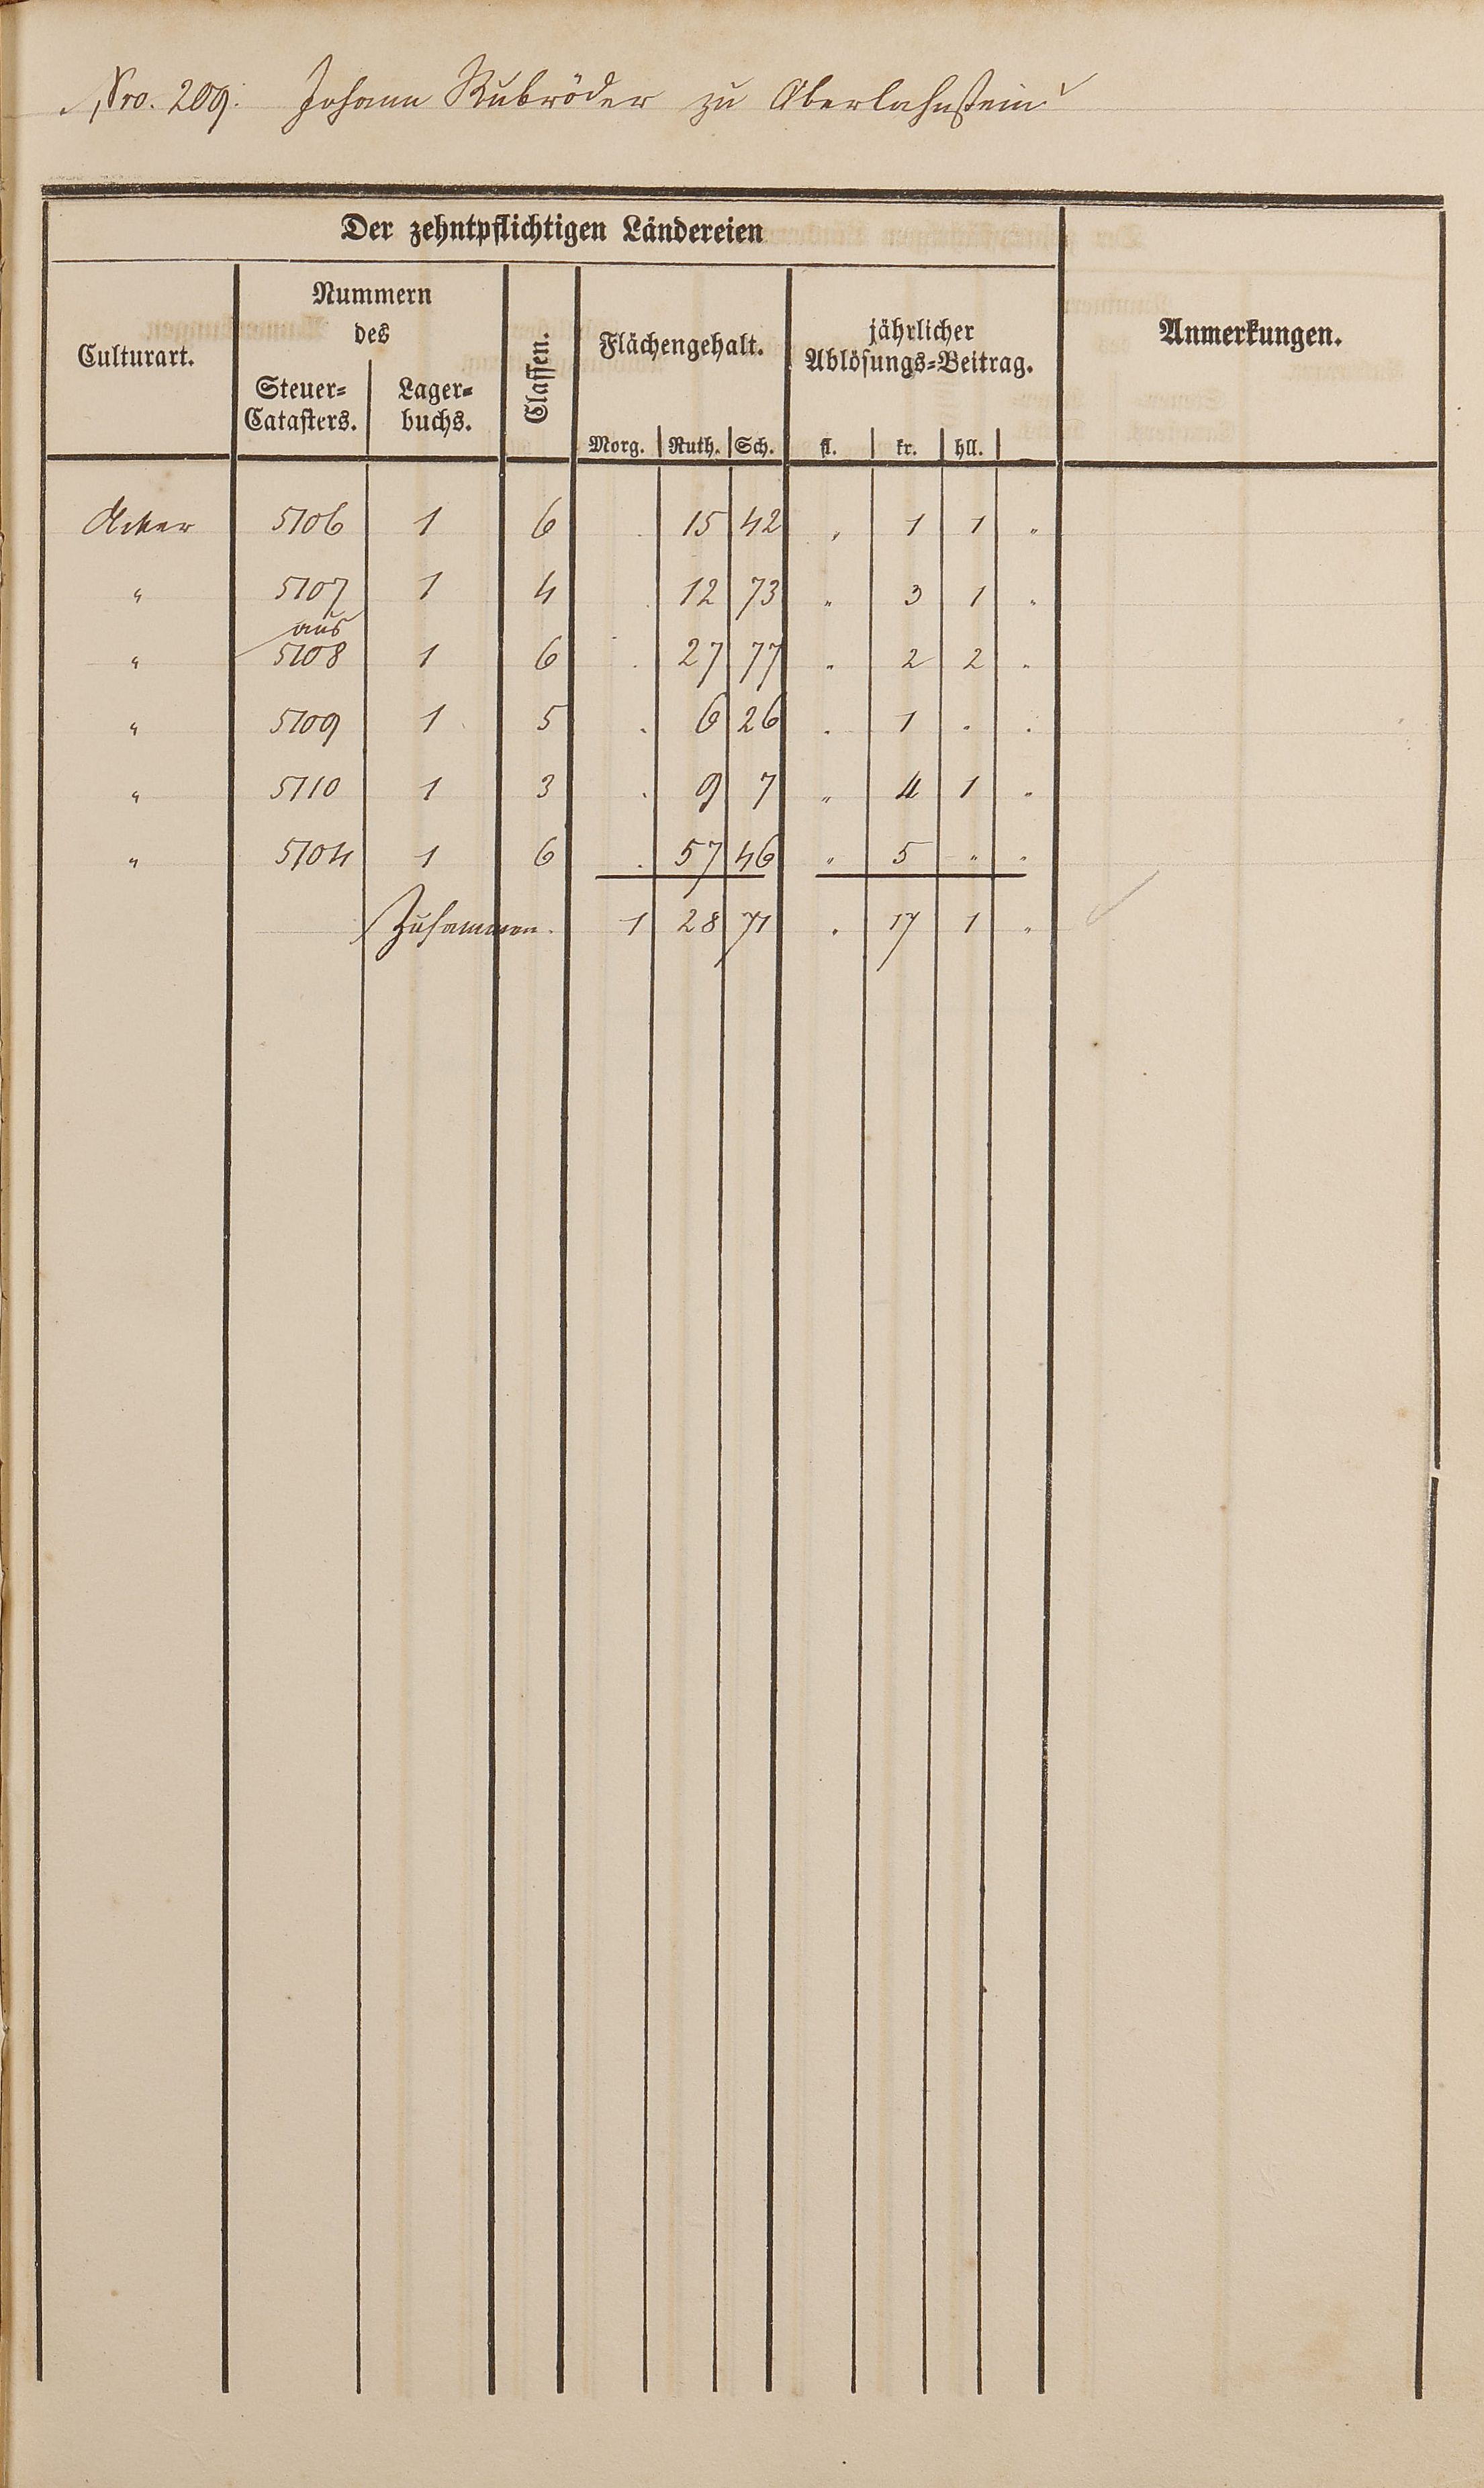 Nro. 209. Johann Rubröder zu Oberlahnstein
Der zehntpflichtigen Ländereien
Culturart.
Nummern
des
Steuer-
Catasters.
Lager-
buchs.
Classen.
Flächengehalt.
Morg. Ruth. Sch.
jährlicher
Ablösungs-Beitrag.
fl. kr. hll.
Anmerkungen.
Acker 5106 1 6 . 15 42 „ 1 1 „
„ 5107 1 4 . 12 73 „ 3 1 „
aus
„ 5108 1 6 . 27 77 „ 2 2 „
„ 5109 1 5 . 6 26 . 1 . .
„ 5110 1 3 . 9 7 „ 4 1 „
„ 5104 1 6 . 57 46 „ 5 „ „
Zusammen. 1 28 71 . 17 1 „